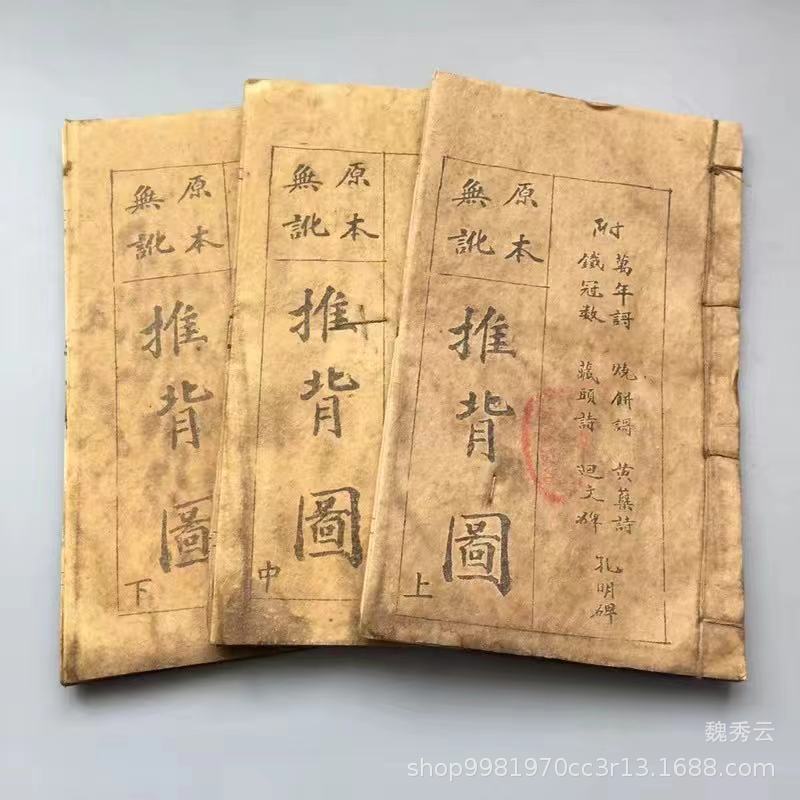 附
萬年謌 燒餅謌 黃蘗詩
鐵冠数 藏頭詩 迴文碑
孔明碑
原本
無訛
推背圖
上
原本
無訛
推背圖
中
原本
無訛
推背圖
下
魏秀云
shop9981970cc3r13.1688.com